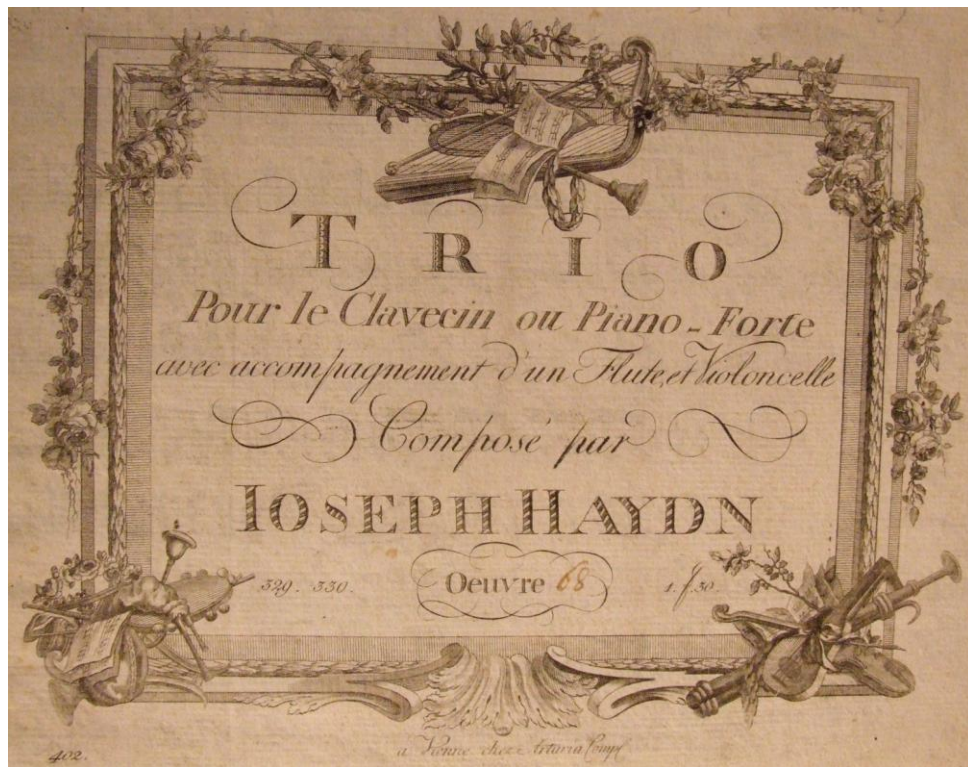 TRIO
Pour le Clavecin ou Piano-Forte
avec accompagnement d'un Flute, et Violoncelle
Composé par
IOSEPH HAYDN
329. 330. Oeuvre 68 1. f. 30.
402. a Vienne chez Artaria Comp.